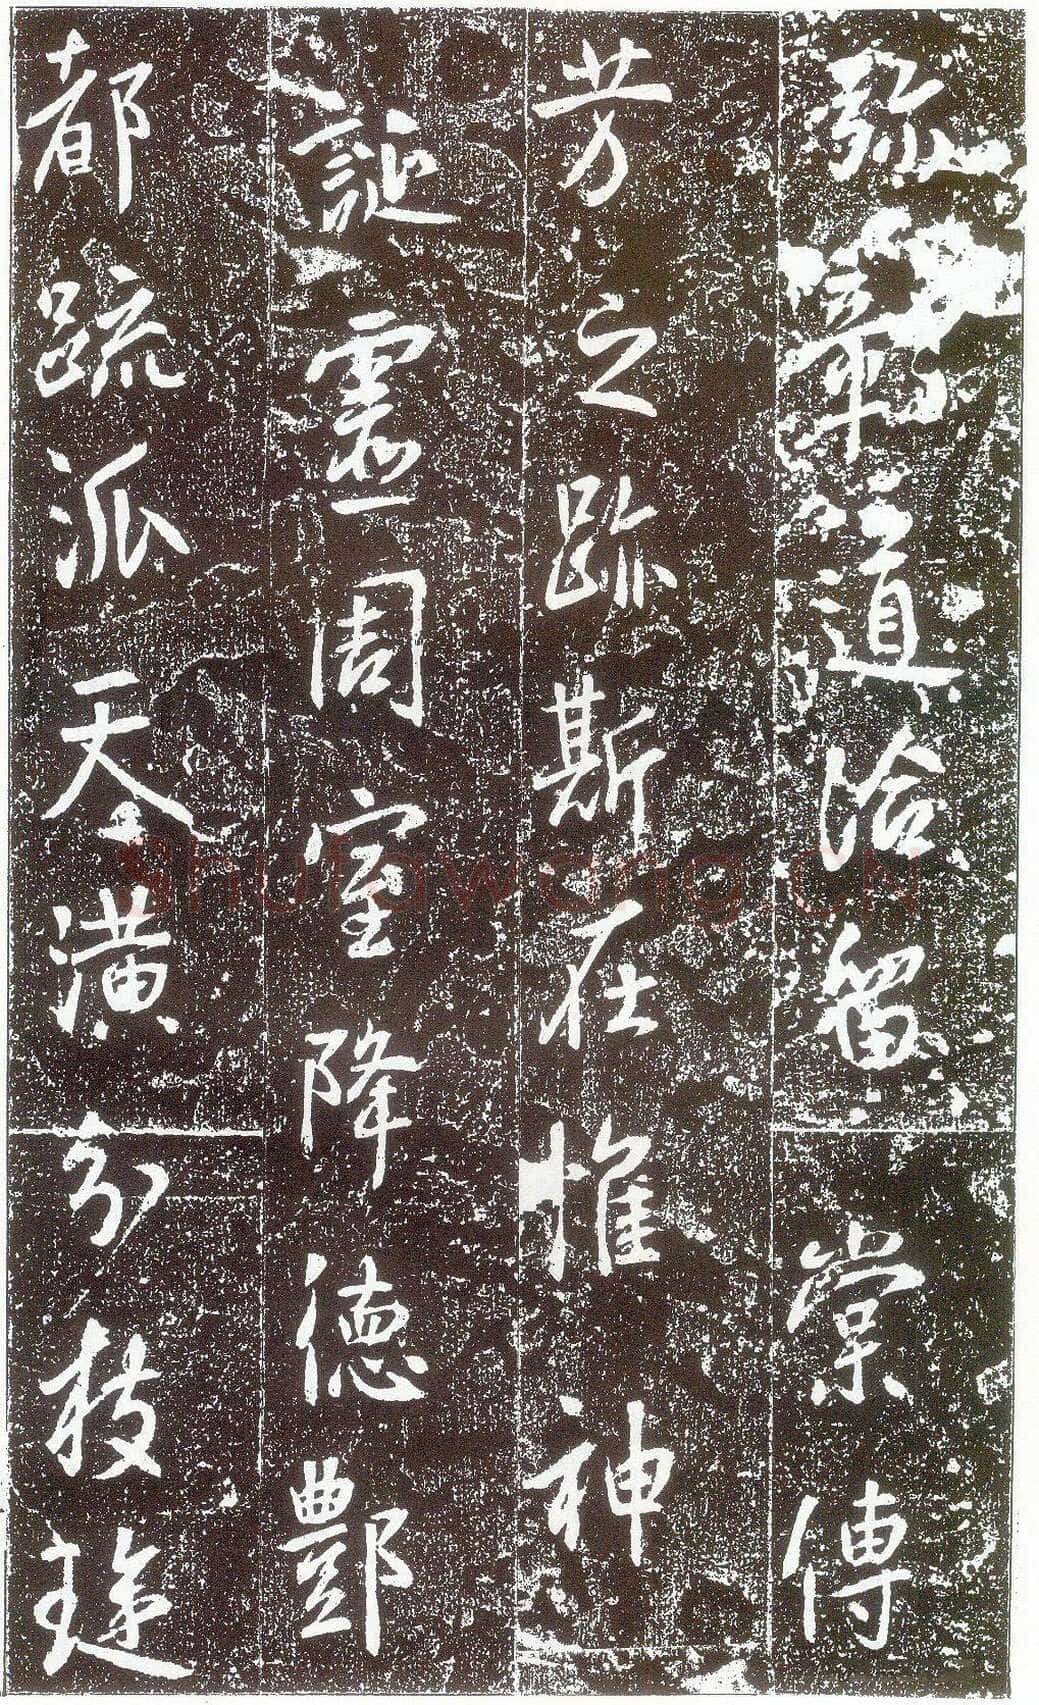 弥章道洽留棠傳
芳之跡斯在惟神
誕靈周室降德酆
都疏派天潢分枝琁
Shufawang.CN